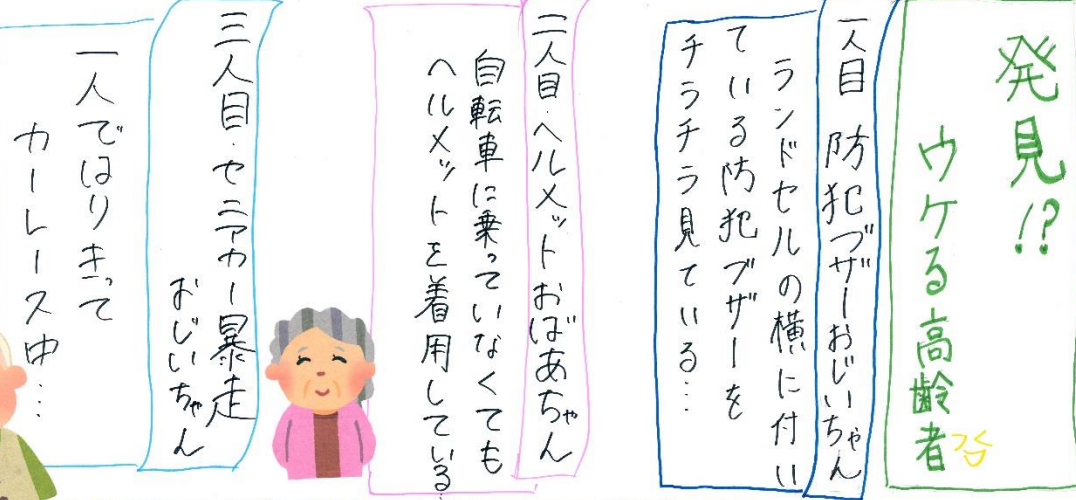 発見!?
ウケる高齢者
一人目 防犯ブザーおじいちゃん
ランドセルの横に付い
ている防犯ブザーを
チラチラ見ている…
二人目・ヘルメットおばあちゃん
自転車に乗っていなくても
ヘルメットを着用している…
三人目・セニアカー暴走
おじいちゃん
一人ではりきって
カーレース中…